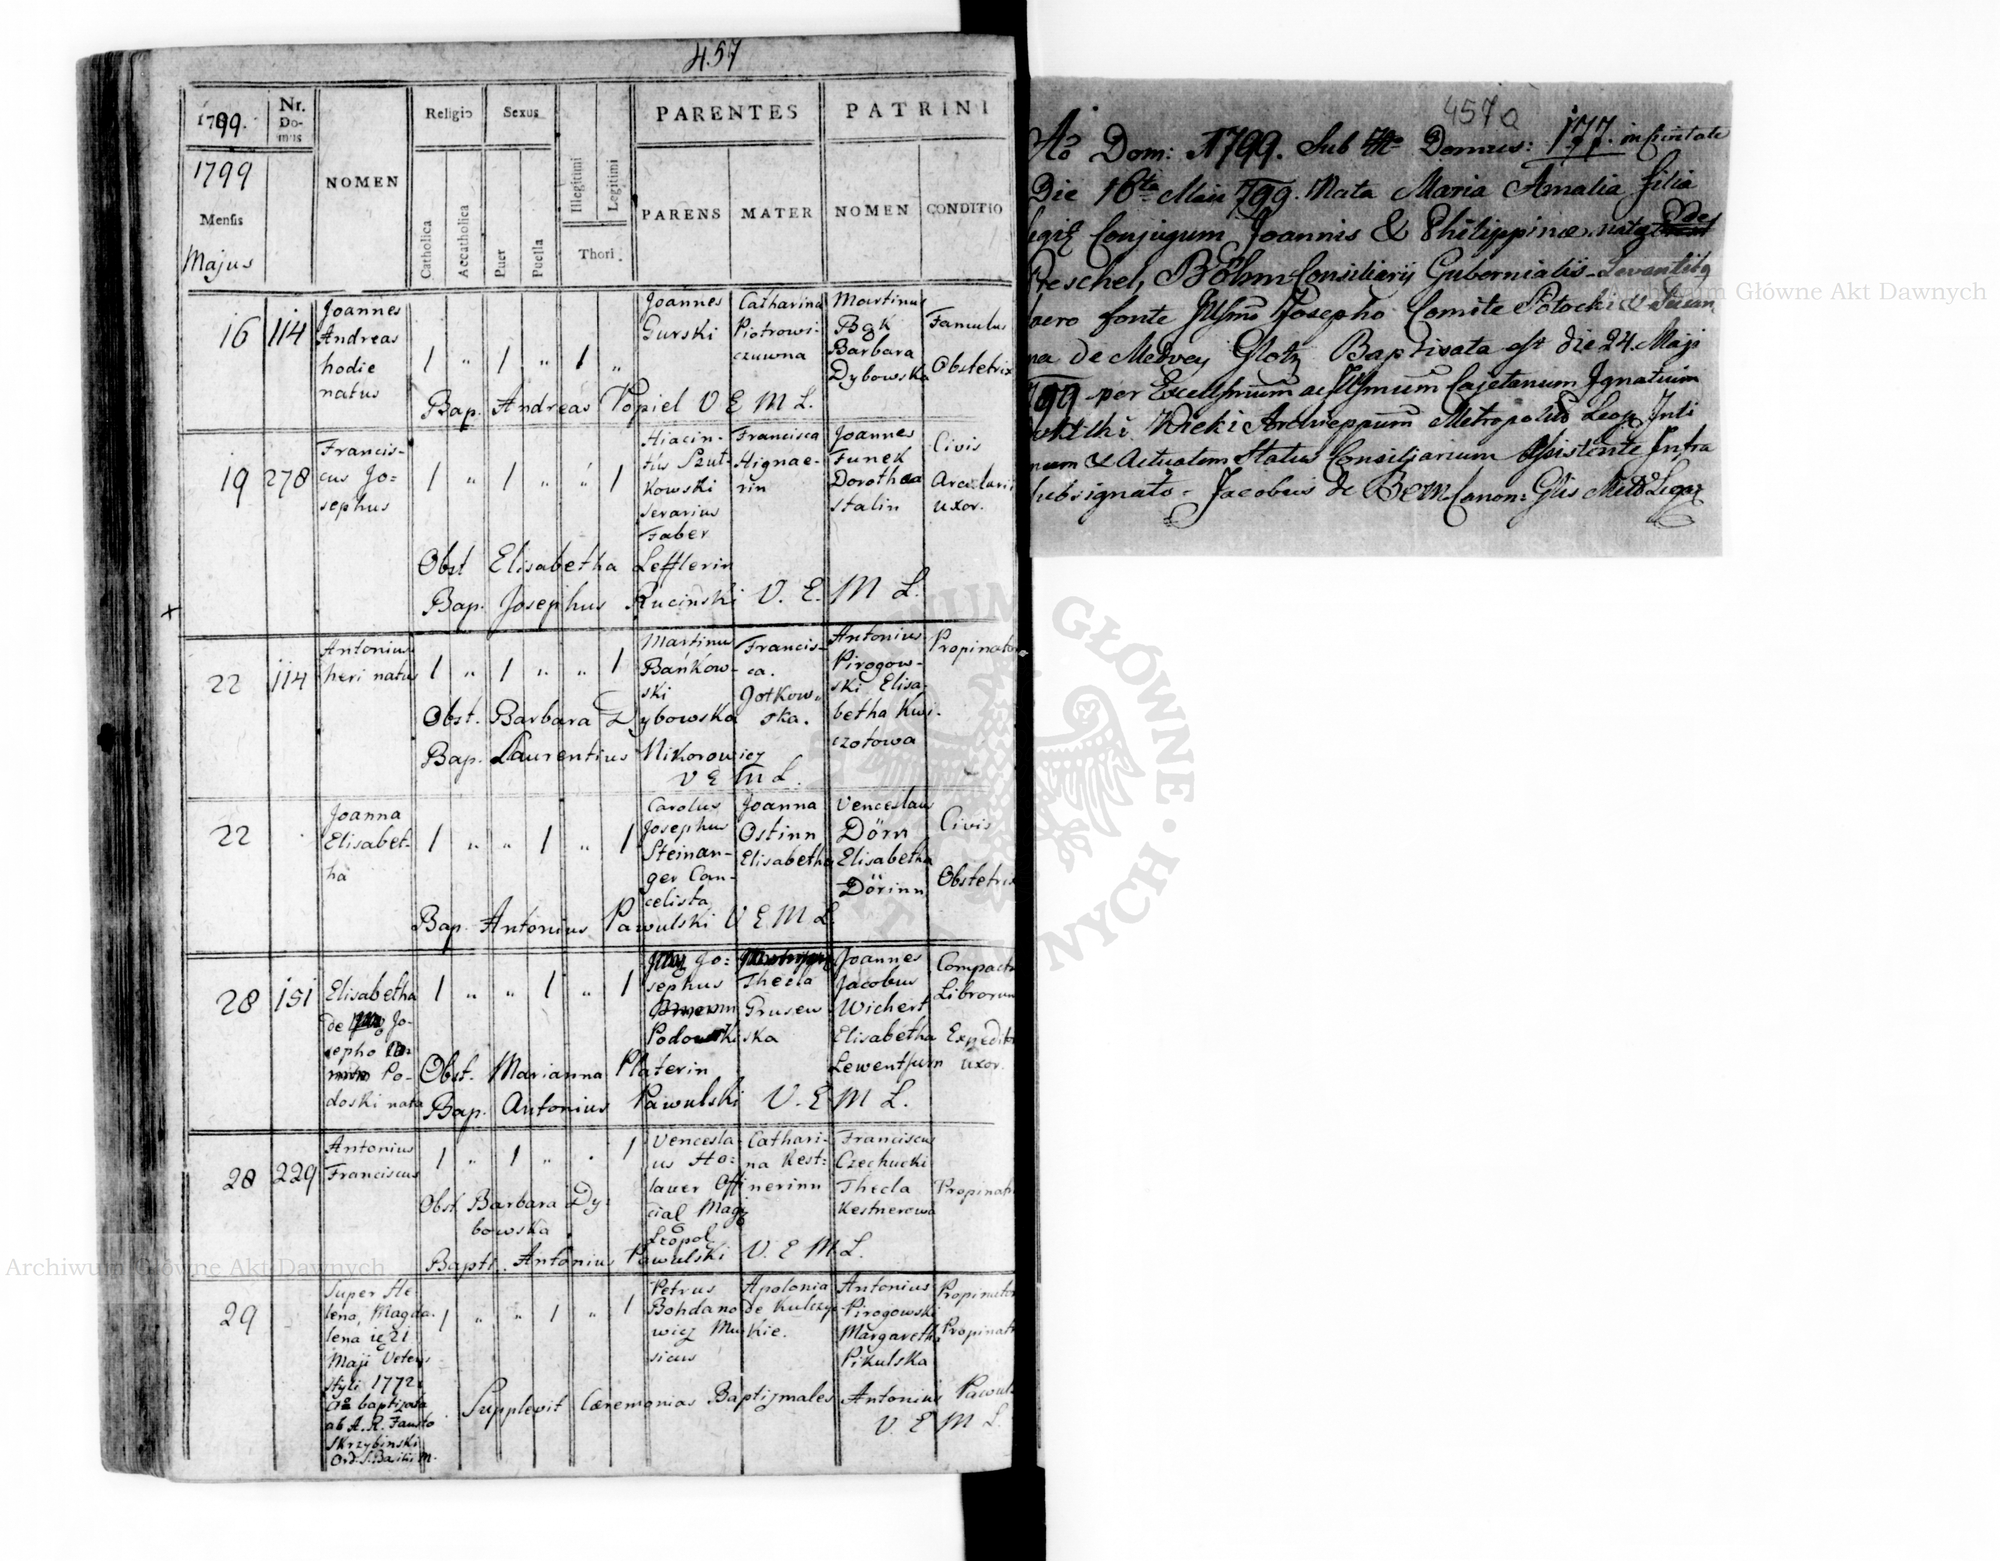 457
1799.
Nr. Domus
NOMEN
Religio
Sexus
Illegitimi
Legitimi
PARENTES
PATRINI
1799
Mensis
Majus
Catholica
Accatholica
Puer
Puella
Thori
PARENS
MATER
NOMEN
CONDITIO
16 114 Joannes Andreas hodie natus
1 " 1 " 1 "
Joannes Gurski
Catharina Piotrowiczuwna
Martinus Bgk Barbara Dybowska
Famulus Obstetrix
Bap. Andreas Popiel V E M L.
19 278 Franciscus Jo=sephus
1 " 1 " " 1
Hiacintus Szutkowski Serarius Faber
Francisca Hignaerin
Joannes Funek Dorothea Stalin
Civis Arcularii uxor.
Obst Elisabetha Lefflerin
Bap. Josephus Rucinski V. E. M L.
22 114 Antonius heri natus
1 " 1 " " 1
Martinus Bańkowski
Francisca. Gotkowska.
Antonius Pirogowski Elisabetha Kwiczotowa
Propinator
Obst. Barbara Dybowska
Bap. Laurentius Nikorowicz
V E M L.
22
Joanna Elisabetha
1 " " 1 " 1
Carolus Josephus Steinanger Cancelista
Joanna Ostinn Elisabetha
Venceslaus Dörn Elisabetha Dörinn
Civis Obstetrix
Bap. Antonius Pawulski V E M L.
28 151 Elisabetha de Josepho Podoski nata
1 " " 1 " 1
Jo=sephus Podowski
Thecla Grusewska
Joannes Jacobus Wichert Elisabetha Lewenthurn
Compact Librorum Expedito uxor.
Obst. Marianna Platerin
Bap. Antonius Pawulski V. E M L.
28 229 Antonius Franciscus
1 " 1 " . 1
Venceslaus Ho=lauer Official Mag Leopol
Catharina Kest=nerinn
Franciscus Czechucki Thecla Kestnerowa
Propinat
Obst. Barbara Dy=bowska
Bapti. Antonius Pawulski V. E M L.
29
Super Helena, Magdalena
Maji Veteris Styli 1772
baptizata ab A. R. Fausto Skrzybinski Ord. S. Basilii M.
1 " " 1 " 1
Petrus Bohdanowicz Musicus
Apolonia de Kulczyckie.
Antonius Pirogowski Margaretha Pikulska
Propinator Propinat
Supplevit Caeremonias Baptizmales Antonius Pawul
V. E M L.
457a
Aō Dom: 1799. Sub Domus: 177. in Civitate
Die 16ta Maii 799. Nata Maria Amalia filia
Conjugum Joannis & Philippinae natae de
Reschel, Böhm Consiliarii Gubernialis Levantibus
fonte Josepho Comite Potocki & Susan
na de Medvey Glotz Baptisata est die 24. Maji
799 per ac Cajetanum Ignatium
Kicki Archieppum Leop
& Actualem Status Consiliarium Assistente Infra
subsignato - Jacobus de Bem Canon:
Archiwum Główne Akt Dawnych
Archiwum Główne Akt Dawnych
ARCHIWUM GŁÓWNE AKT DAWNYCH